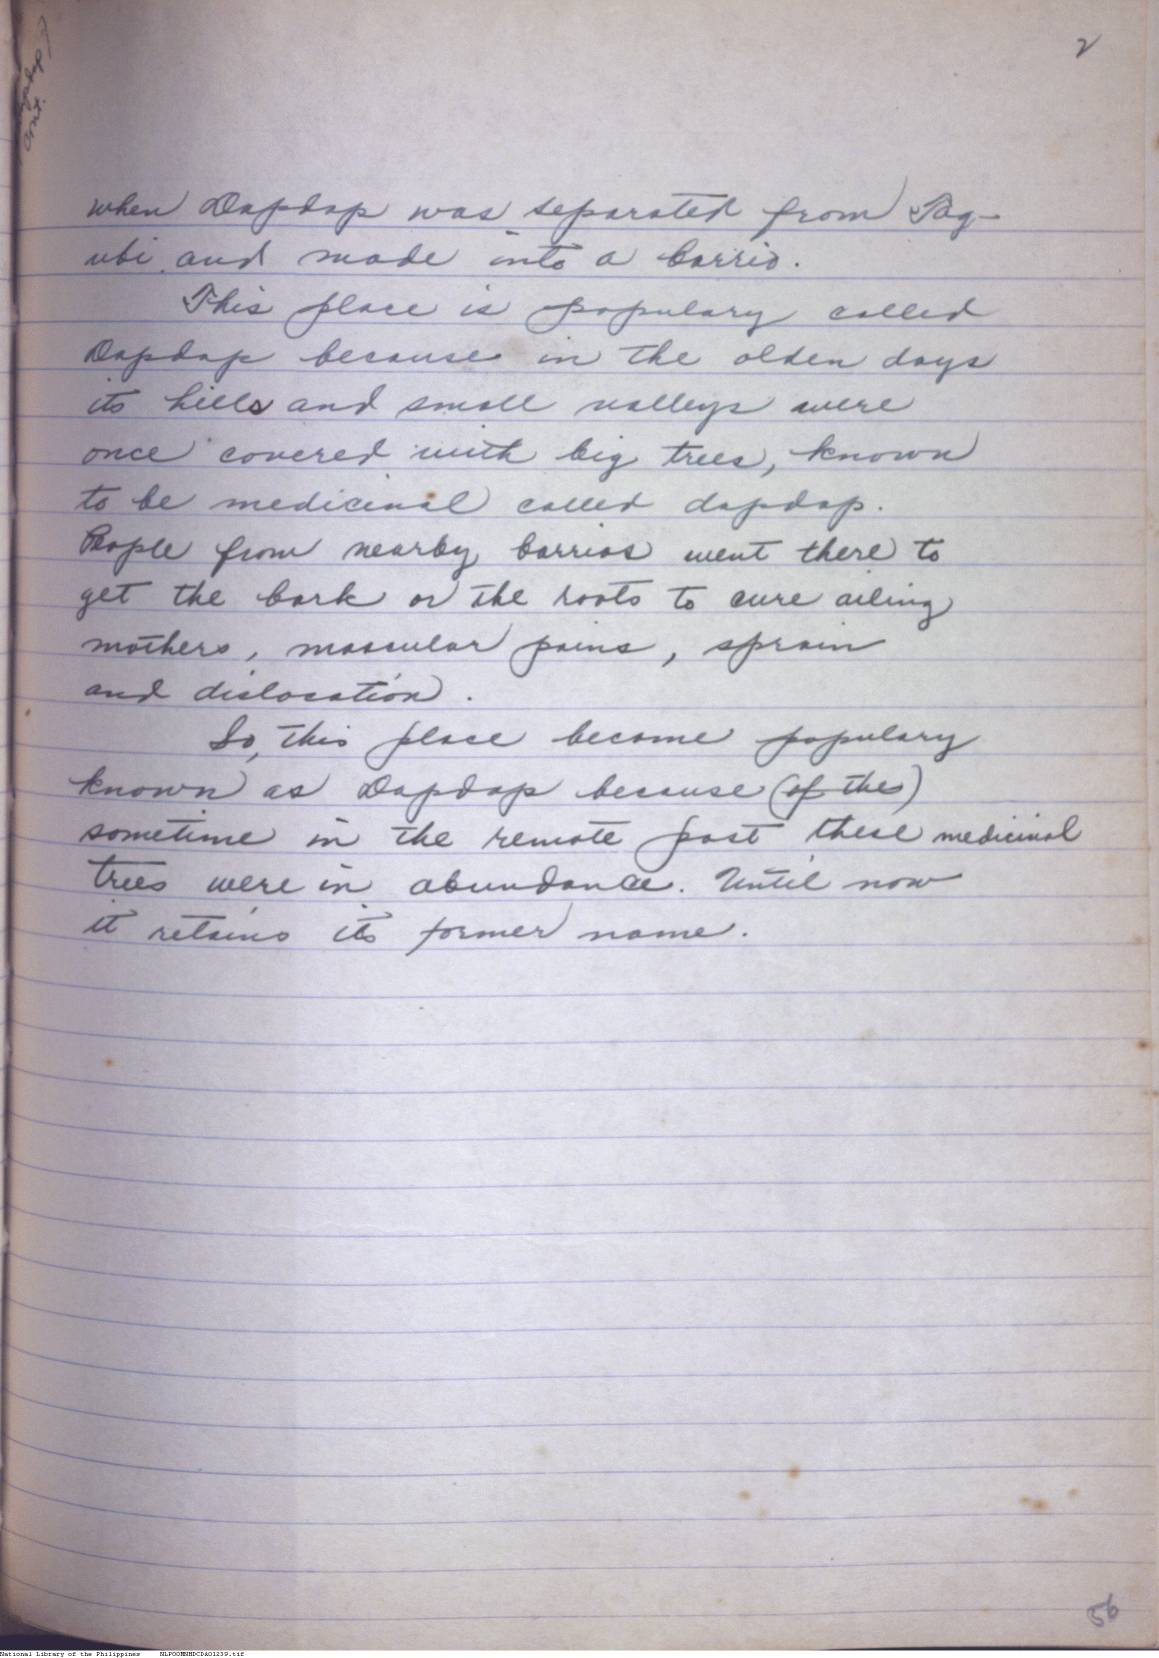 2
Dapdap
Cont.
when Dapdap was separated from Tag-
ubi and made into a barrio.
This place is populary called
Dapdap because in the olden days
its hills and small valleys were
once covered with big trees, known
to be medicinal called dapdap.
People from nearby barrios went there to
get the bark or the roots to cure ailing
mothers, mascular pains, sprain
and dislocation.
So, this place become populary
known as Dapdap because (of the)
sometime in the remote past these medicinal
trees were in abundance. Until now
it retains its former name.
56
National Library of the Philippines NLPOOMNHDCDA01239.tif